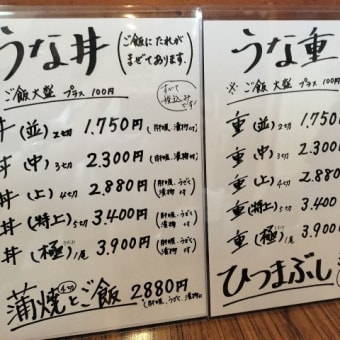 うな丼
(ご飯にたれが
まぜてあります。)
ご飯大盛 プラス 100円
すべて
税込み
です!
丼(並)2切 1.750円(肝吸、漬物付)
丼(中)3切 2.300円(肝吸、漬物付)
丼(上)4切 2.880円(肝吸、うざく、漬物付)
丼(特上)5切 3.400円(肝吸、うざく、漬物付)
丼(極)1尾 3.900円(肝吸、うざく、漬物付)
蒲焼(4切)とご飯 2880円
(肝吸、うざく、漬物付)
うな重
※ご飯大盛 プラス 100円
重(並)2切 1.750
重(中)3切 2.300
重(上)4切 2.880
重(特上)5切 3.400
重(極)1尾 3.900
ひつまぶし